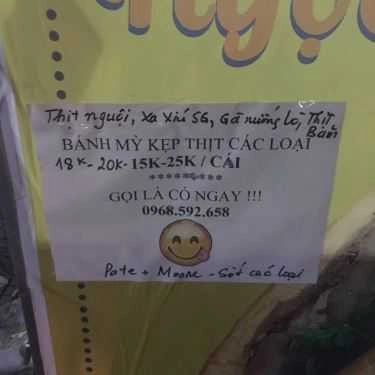 Ngọ
Thịt nguội, Xa Xíu SG, Gà nướng lò, Thịt Bằm
BÁNH MỲ KẸP THỊT CÁC LOẠI
18K-20K-15K-25K / CÁI
*********
GỌI LÀ CÓ NGAY !!!
0968.592.658
Pate + Moane - Sốt các loại